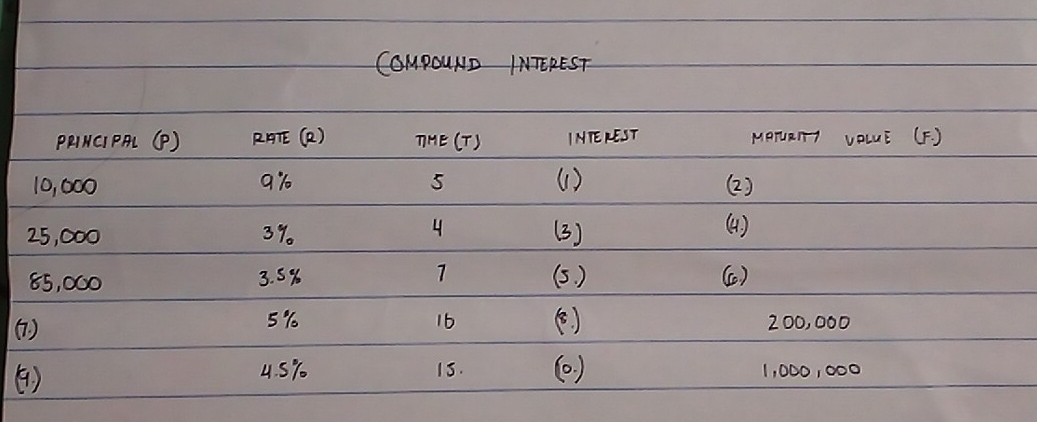 COMPOUND INTEREST
PRINCIPAL (P) RATE (R) TIME (T) INTEREST MATURITY VALUE (F.)
10,000 9% 5 (1.) (2.)
25,000 3% 4 (3.) (4.)
85,000 3.5% 7 (5.) (6.)
(7.) 5% 16 (8.) 200,000
(9.) 4.5% 15. (0.) 1,000,000